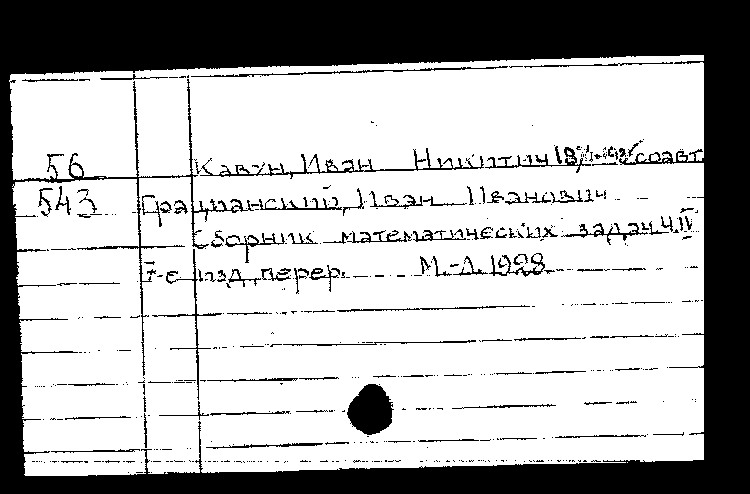 56 Кавун, Иван Никитич соавт.
543 Грацианский, Иван Иванович
Сборник математических задач Ч. IV
7-е изд., перер. М.-Л. 1928